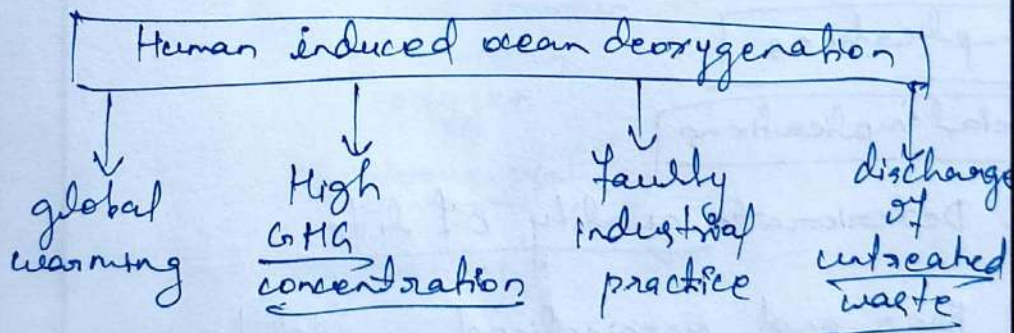 Human induced ocean deoxygenation
global
warming
High
GHG
concentration
faulty
industrial
practice
discharge
of
untreated
waste